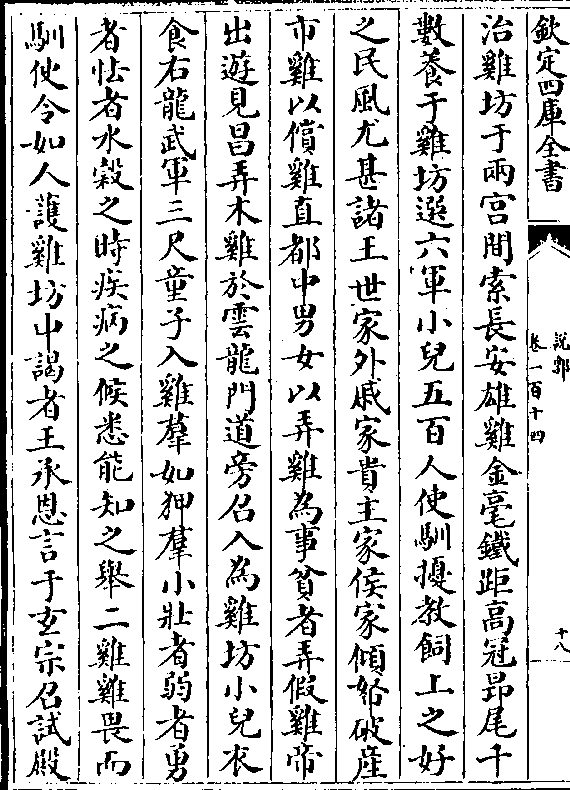 欽定四庫全書
說郛
卷一百十四
十八
治雞坊于兩宮間索長安雄雞金毫鐵距高冠昂尾千
數養于雞坊選六軍小兒五百人使馴擾教飼上之好
之民風尤甚諸王世家外戚家貴主家侯家傾帑破産
市雞以償雞直都中男女以弄雞為事貧者弄假雞帝
出遊見昌弄木雞於雲龍門道旁召入為雞坊小兒衣
食右龍武軍三尺童子入雞羣如狎羣小壯者弱者勇
者怯者水糓之時疾病之候悉能知之舉二雞雞畏而
馴使令如人䕶雞坊中謁者王承恩言于玄宗召試殿